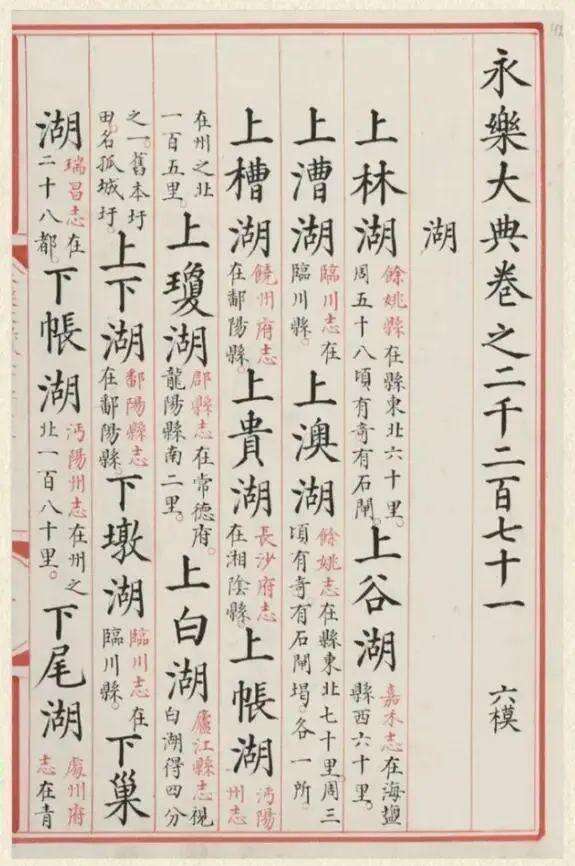 永樂大典卷之二千二百七十一 六模
湖
上林湖餘姚縣在縣東北六十里。周五十八頃有奇有石閘。上谷湖嘉禾志在海鹽縣西六十里。
上漕湖臨川志在臨川縣。上澳湖餘姚志在縣東北七十里周三頃有奇有石閘堨。各一所。
上槽湖饒州府志在鄱陽縣。上貴湖長沙府志在湘陰縣。上帳湖沔陽州志
在州之北一百五里。上瓊湖郡縣志在常德府。龍陽縣南二里。上白湖廬江縣志視白湖得四分
之一。舊本圩田名孤城圩。上下湖鄱陽縣志在鄱陽縣。下墩湖臨川志在臨川縣。下巢
湖瑞昌志在二十八都。下帳湖沔陽州志在州之北一百八十里。下尾湖處州府志在青